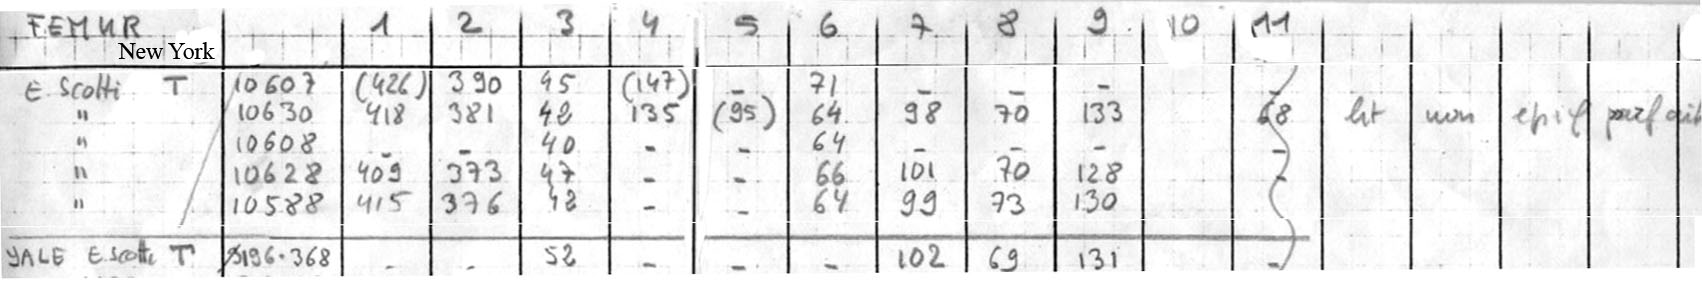 FEMUR 1 2 3 4 5 6 7 8 9 10 (11
New York
E Scotti T 10607 (426) 390 45 (147) - 71 - - - -
" 10630 418 381 42 135 (95) 64 98 70 133 68 non epif parfait
" 10608 - - 40 - - 64 - - - -
" 10628 409 373 47 - - 66 101 70 128 -
" 10588 415 376 42 - - 64 99 73 130
YALE E Scotti T 196.368 - - 52 - - - 102 69 131 -